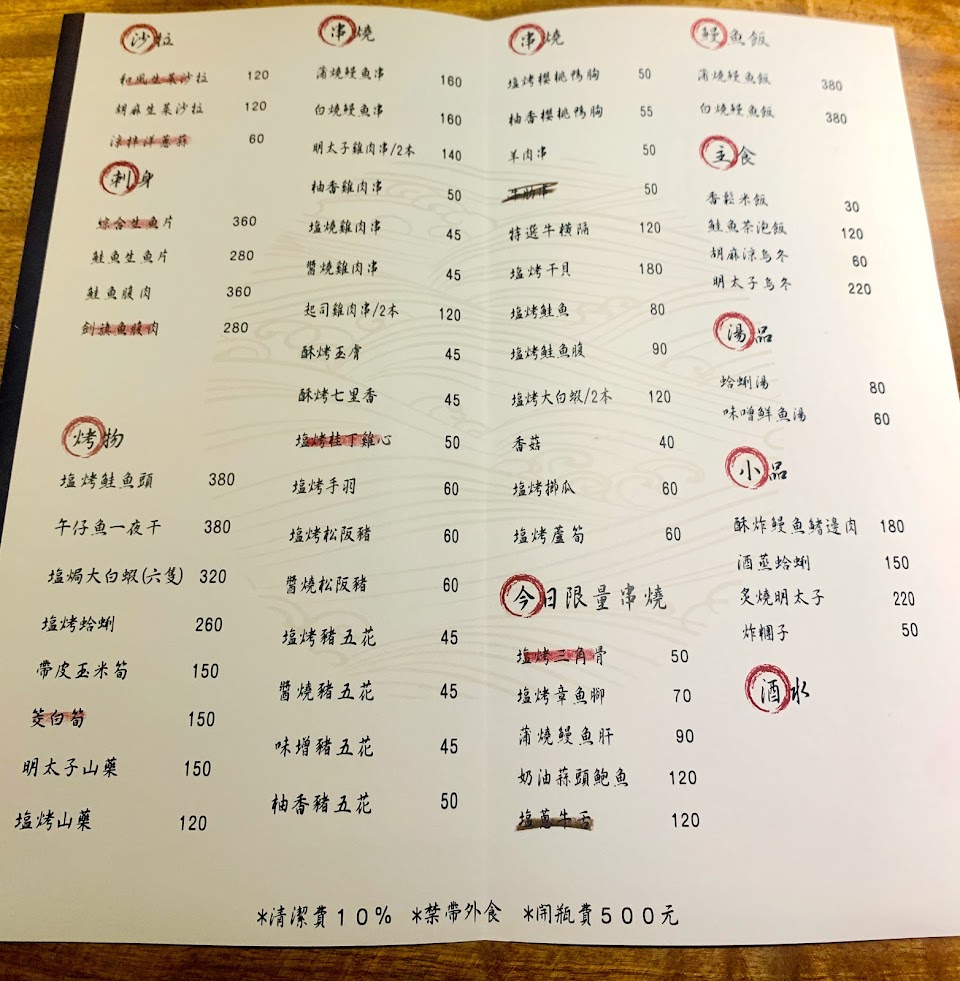 沙拉
和風生菜沙拉 120
胡麻生菜沙拉 120
涼拌洋蔥蒜 60
刺身
綜合生魚片 360
鮭魚生魚片 280
鮭魚腹肉 360
劍旗魚腹肉 280
烤物
塩烤鮭魚頭 380
午仔魚一夜干 380
塩焗大白蝦(六隻) 320
塩烤蛤蜊 260
帶皮玉米筍 150
茭白筍 150
明太子山藥 150
塩烤山藥 120
串燒
蒲燒鰻魚串 160
白燒鰻魚串 160
明太子雞肉串/2本 140
柚香雞肉串 50
塩燒雞肉串 45
醬燒雞肉串 45
起司雞肉串/2本 120
酥烤玉膚 45
酥烤七里香 45
塩烤桂丁雞心 50
塩烤手羽 60
塩烤松阪豬 60
醬燒松阪豬 60
塩烤豬五花 45
醬燒豬五花 45
味增豬五花 45
柚香豬五花 50
串燒
塩烤櫻桃鴨胸 50
柚香櫻桃鴨胸 55
羊肉串 50
50
特選牛橫隔 120
塩烤干貝 180
塩烤鮭魚 80
塩烤鮭魚腹 90
塩烤大白蝦/2本 120
香菇 40
塩烤櫛瓜 60
塩烤蘆筍 60
今日限量串燒
塩烤三角骨 50
塩烤章魚腳 70
蒲燒鰻魚肝 90
奶油蒜頭鮑魚 120
塩蔥牛舌 120
鰻魚飯
蒲燒鰻魚飯 380
白燒鰻魚飯 380
主食
香鬆米飯 30
鮭魚茶泡飯 120
胡麻涼烏冬 60
明太子烏冬 220
湯品
蛤蜊湯 80
味噌鮮魚湯 60
小品
酥炸鰻魚鰭邊肉 180
酒蒸蛤蜊 150
炙燒明太子 220
炸糰子 50
酒水
*清潔費10% *禁帶外食 *開瓶費500元